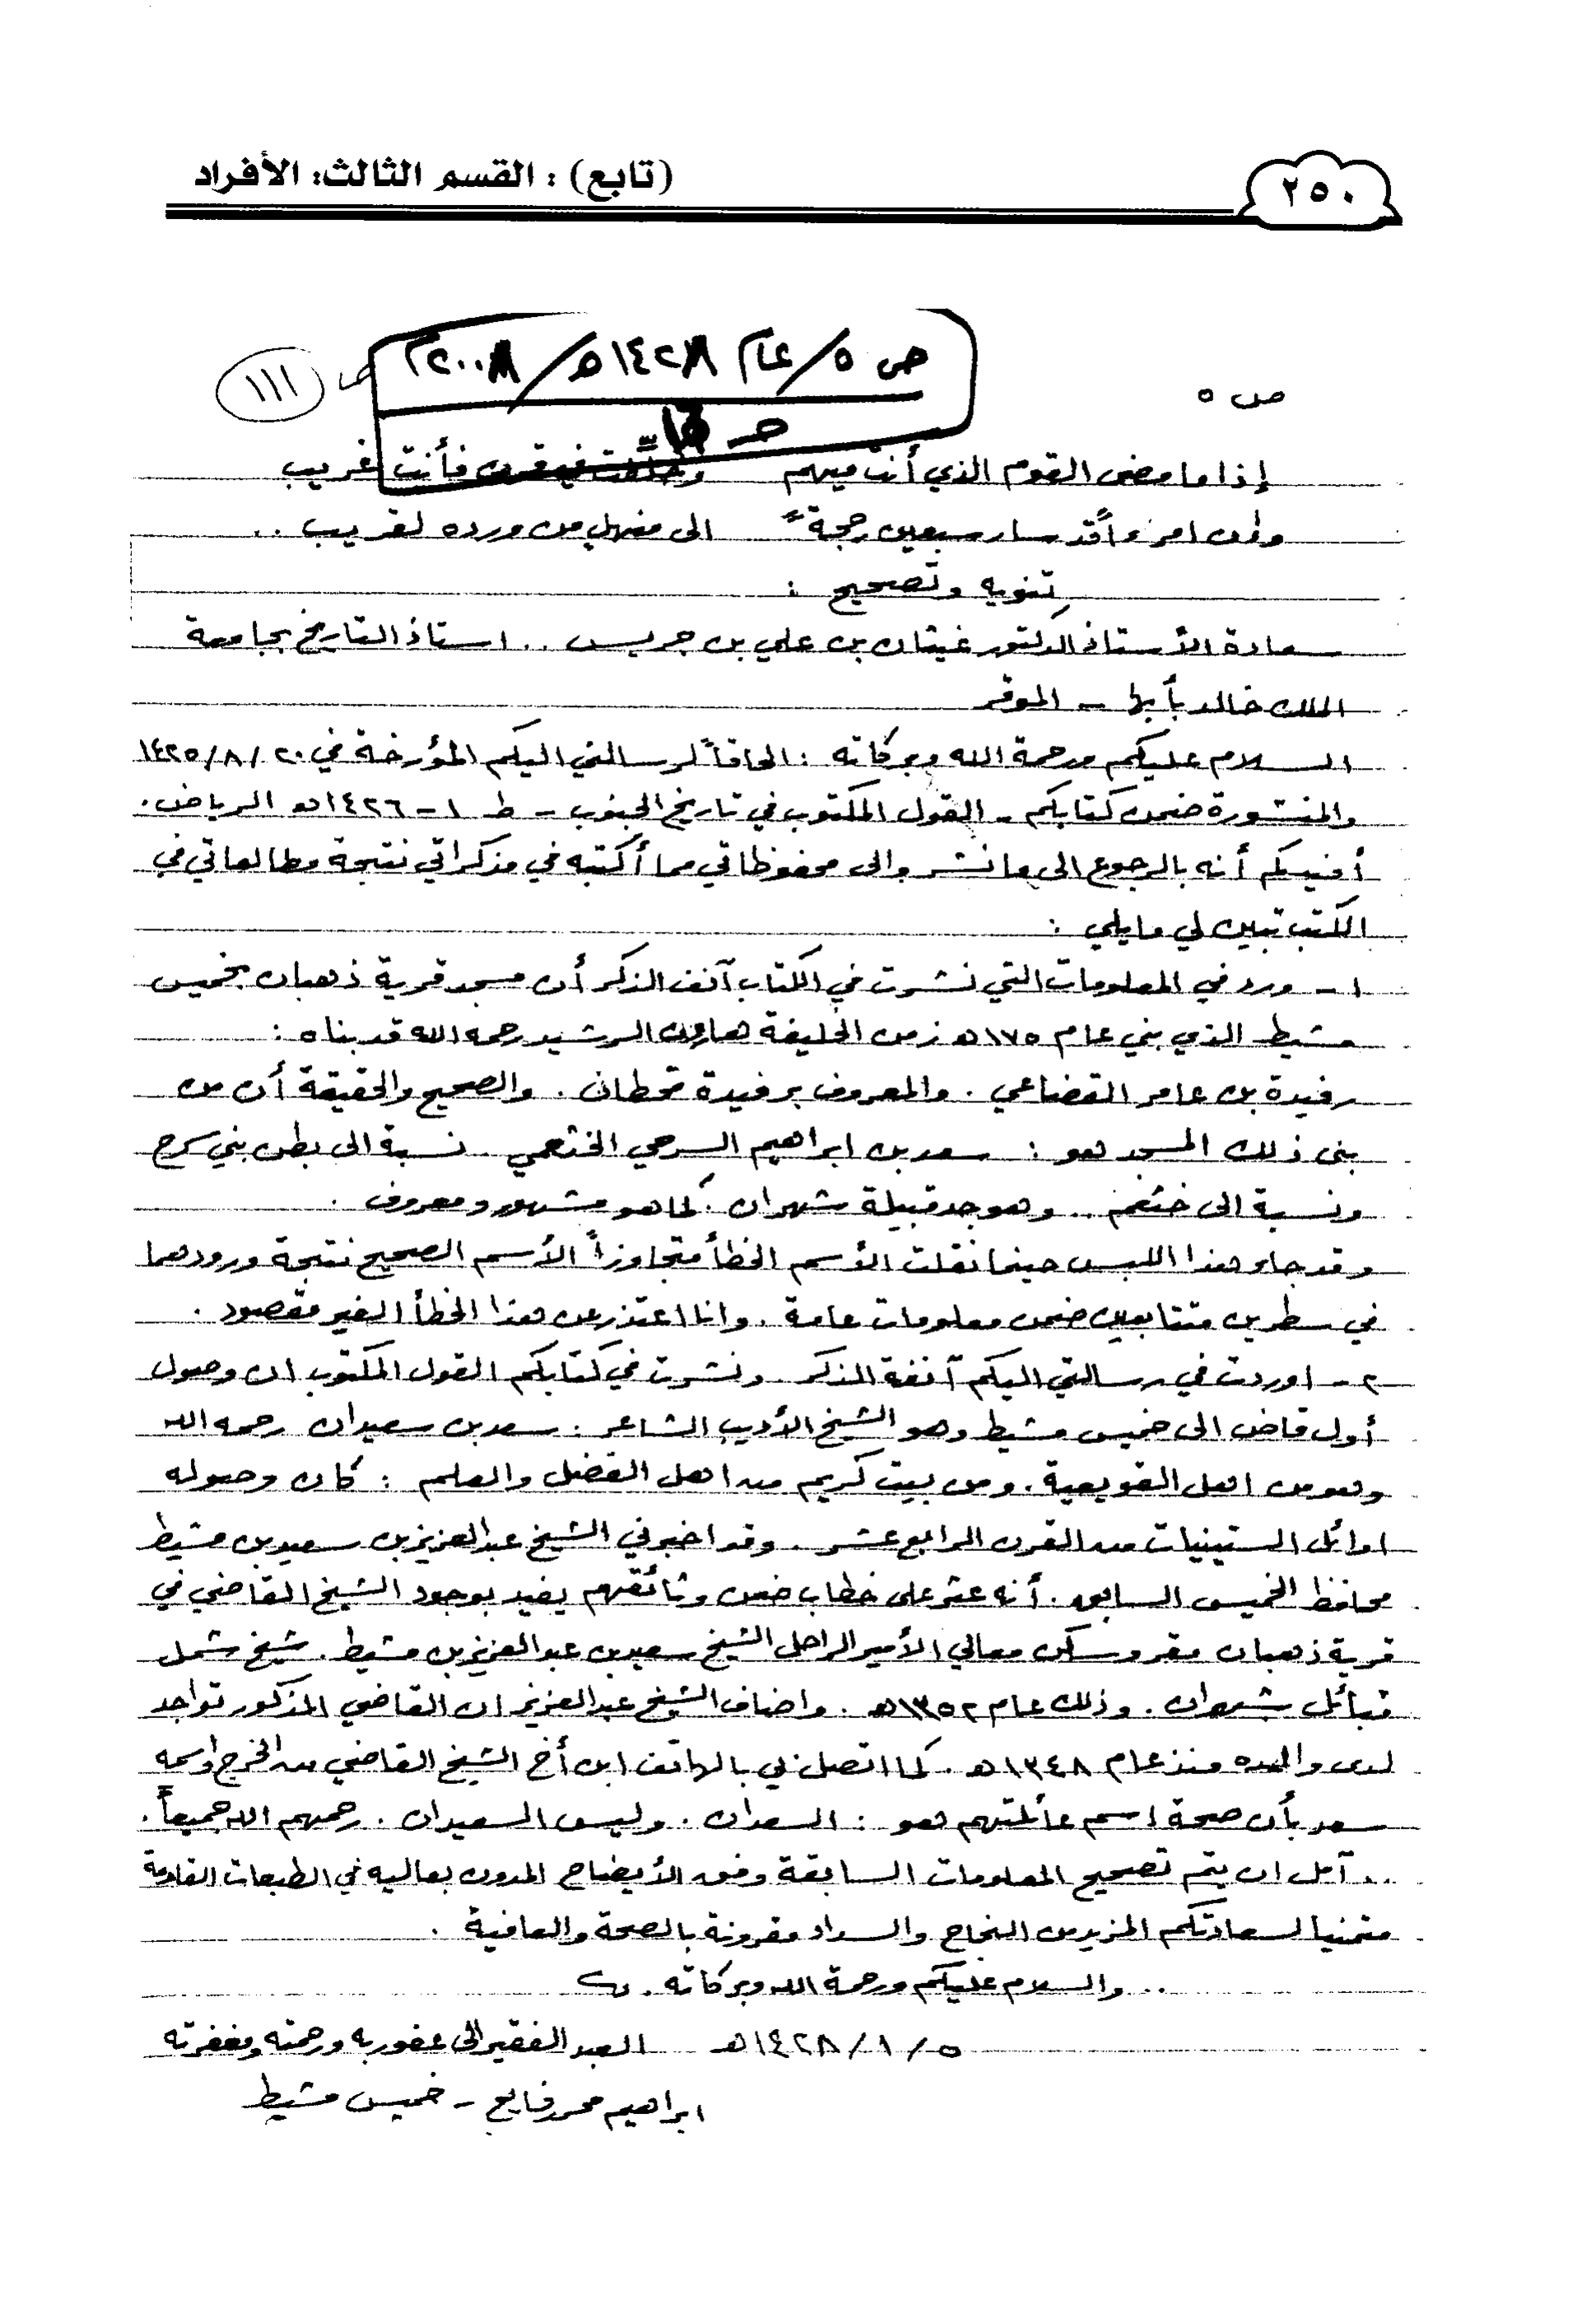 ٢٥٠
(تابع) : القسم الثالث: الأفراد
ص ٥/ عام ١٤٢٨هـ/ ٢٠٠٨م
ص ١١١
ص ٥
إذا ما مضى القوم الذي أنت فيهم وخلِّفت في قرن فأنت غريب
وإن امرءاً قد سار سبعين حجة الى منهل من ورده لقريب ..
تنويه وتصحيح :
سعادة الأستاذ الدكتور غيثان بن علي بن جريس .. استاذ التاريخ بجامعة
الملك خالد بأبها - الموقر
السلام عليكم ورحمة الله وبركاته : الحاقاً لرسالتي اليكم المؤرخة في ٢٠/٨/١٤٢٥
والمنشورة ضمن كتابكم - القول المكتوب في تاريخ الجنوب - ط ١ - ١٤٢٦هـ الرياض .
أفيدكم أنه بالرجوع الى ما نشر والى محفوظاتي مما أكتبه في مذكراتي نتيجة مطالعاتي في
الكتب تبين لي مايلي :
١ - ورد في المعلومات التي نشرت في الكتاب آنف الذكر أن مسجد قرية ذهبان بخميس
مشيط الذي بني عام ١٧٥هـ زمن الخليفة هارون الرشيد رحمه الله قد بناه :
رفيدة بن عامر القضاعي . والمعروف برفيدة قحطان . والصحيح والحقيقة أن من
بنى ذلك المسجد هو : سعد بن ابراهيم السرحي الخثعمي نسبة الى بطن بني سرح
ونسبة الى خثعم .. وهو جد قبيلة شهران . كما هو مشهور ومعروف .
وقد جاء هذا اللبس حينما نقلت الأسم الخطأ متجاوزاً الأسم الصحيح نتيجة ورودهما
في سطرين متتابعين ضمن معلومات عامة . وانا اعتذر عن هذا الخطأ الغير مقصود .
٢ - اوردت في رسالتي اليكم آنفة الذكر ونشرت في كتابكم القول المكتوب ان وصول
أول قاض الى خميس مشيط وهو الشيخ الأديب الشاعر : سعد بن سعيدان رحمه الله
وهو من اهل القويعية . ومن بيت كريم من اهل الفضل والعلم : كان وصوله
اوائل الستينيات من القرن الرابع عشر . وقد اخبرني الشيخ عبدالعزيز بن سعيد بن مشيط
محافظ الخميس السابق . أنه عثر على خطاب ضمن وثائقهم يفيد بوجود الشيخ القاضي في
قرية ذهبان مقر وسكن معالي الأمير الراحل الشيخ سعيد بن عبدالعزيز بن مشيط . شيخ شمل
قبائل شهران . وذلك عام ١٣٥٢هـ . واضاف الشيخ عبدالعزيز ان القاضي المذكور تواجد
لدى والده منذ عام ١٣٤٨هـ . كما اتصل بي بالهاتف ابن أخ الشيخ القاضي من الخرج واسمه
سعد بأن صحة اسم عائلتهم هو : السعدان . وليس السعيدان . رحمهم الله جميعاً .
.. آمل ان يتم تصحيح المعلومات السابقة وفق الأيضاح المدون بعاليه في الطبعات القادمة
متمنيا لسعادتكم المزيد من النجاح والسداد مقرونة بالصحة والعافية .
.. والسلام عليكم ورحمة الله وبركاته .
٥/ ١/ ١٤٢٨هـ العبد الفقير الى عفو ربه ورحمته ومغفرته
ابراهيم محمد فايع - خميس مشيط